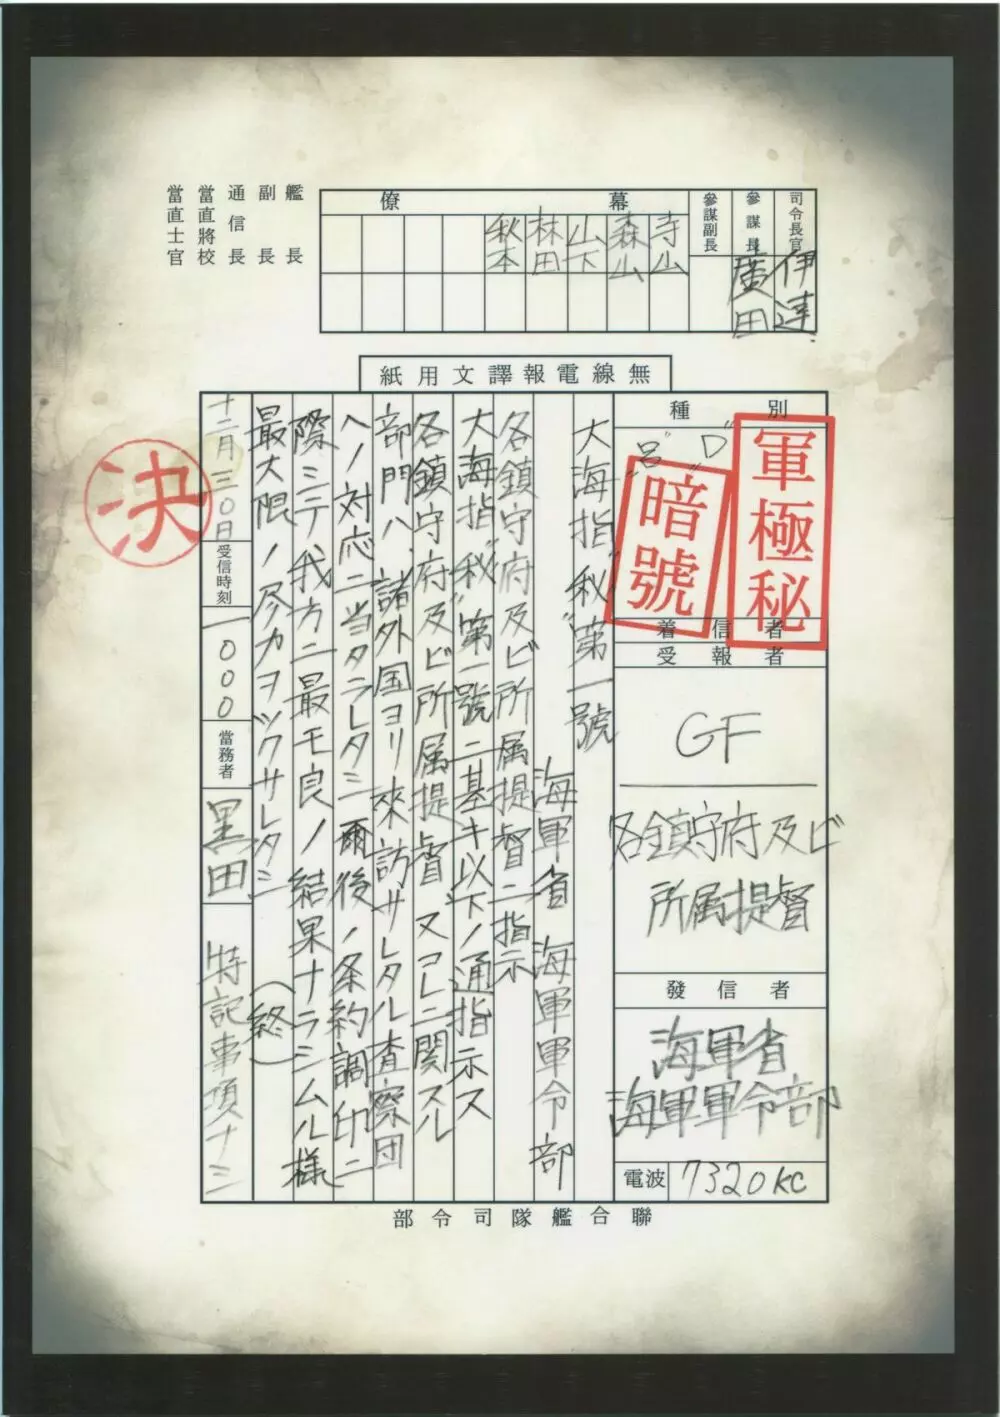 司令長官
伊達
參謀長
廣田
參謀副長
幕僚
寺山
森山
山下
林田
秋本
艦長
副長
通信長
當直將校
當直士官
無線電報譯文用紙
種別
軍極秘
"D"
"呂"
暗號
着信者
受報者
GF
各鎮守府及ビ
所属提督
發信者
海軍省
海軍軍令部
電波
7320KC
大海指"秘"第一號
海軍省 海軍軍令部
各鎮守府及ビ所属提督ニ指示
大海指"秘"第一號ニ基キ以下ノ通指示ス
各鎮守府及ビ所属提督、又コレニ関スル
部門ハ、諸外国ヨリ来訪サレタル査察団
ヘノ対応ニ当タラレタシ 爾後ノ条約調印ニ
際シテ我方ニ最モ良ノ結果ナラシムル様
最大限ノ尽力ヲツクサレタシ (終)
十二月三〇日
受信時刻
一〇〇〇
當務者
黒田
特記事項ナシ
決
聯合艦隊司令部